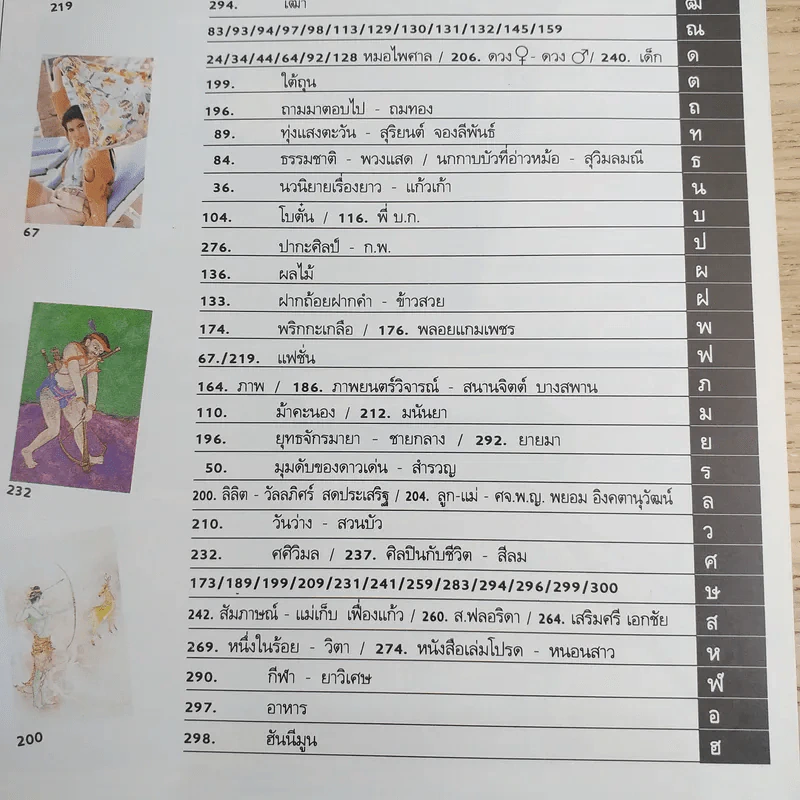 219
294. เฒ่า ฒ
83/93/94/97/98/113/129/130/131/132/145/159 ณ
24/34/44/64/92/128 หมอไพศาล / 206. ดวง♀- ดวง ♂/ 240. เด็ก ด
199. ใต้ถุน ต
196. ถามมาตอบไป - ถมทอง ถ
89. ทุ่งแสงตะวัน - สุริยนต์ จองลีพันธ์ ท
84. ธรรมชาติ - พวงแสด / นกกาบบัวที่อ่าวหม้อ - สุวิมลมณี ธ
36. นวนิยายเรื่องยาว - แก้วเก้า น
67
104. โบตั๋น / 116. พี่ บ.ก. บ
276. ปากะศิลป์ - ก.พ. ป
136. ผลไม้ ผ
133. ฝากถ้อยฝากคำ - ข้าวสวย ฝ
174. พริกกะเกลือ / 176. พลอยแกมเพชร พ
67./219. แฟชั่น ฟ
164. ภาพ / 186. ภาพยนตร์วิจารณ์ - สนานจิตต์ บางสพาน ภ
110. ม้าคะนอง / 212. มนันยา ม
196. ยุทธจักรมายา - ชายกลาง / 292. ยายมา ย
50. มุมดับของดาวเด่น - สำรวญ ร
232
200. ลิลิต - วัลลภิศร์ สดประเสริฐ / 204. ลูก-แม่ - ศจ.พ.ญ. พยอม อิงคตานุวัฒน์ ล
210. วันว่าง - สวนบัว ว
232. ศศิวิมล / 237. ศิลปินกับชีวิต - สีลม ศ
173/189/199/209/231/241/259/283/294/296/299/300 ษ
242. สัมภาษณ์ - แม่เก็บ เฟื่องแก้ว / 260. ส.ฟลอริดา / 264. เสริมศรี เอกชัย ส
269. หนึ่งในร้อย - วิตา / 274. หนังสือเล่มโปรด - หนอนสาว ห
290. กีฬา - ยาวิเศษ ฬ
297. อาหาร อ
200
298. ฮันนีมูน ฮ